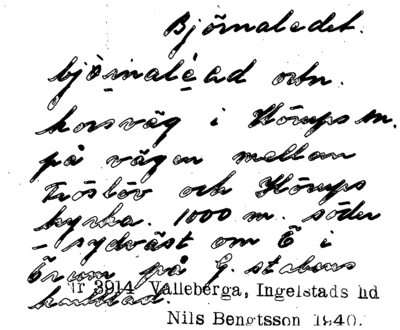 Björnaledet.
björnaléad ortn.
korsväg i Hörups sn.
på vägen mellan
Fröslöv och Hörups
kyrka. 1000 m. söder
-sydväst om E i
Örum på G. stabens
kartblad.
Nr 3914 Valleberga, Ingelstads hd
Nils Bengtsson 1940.